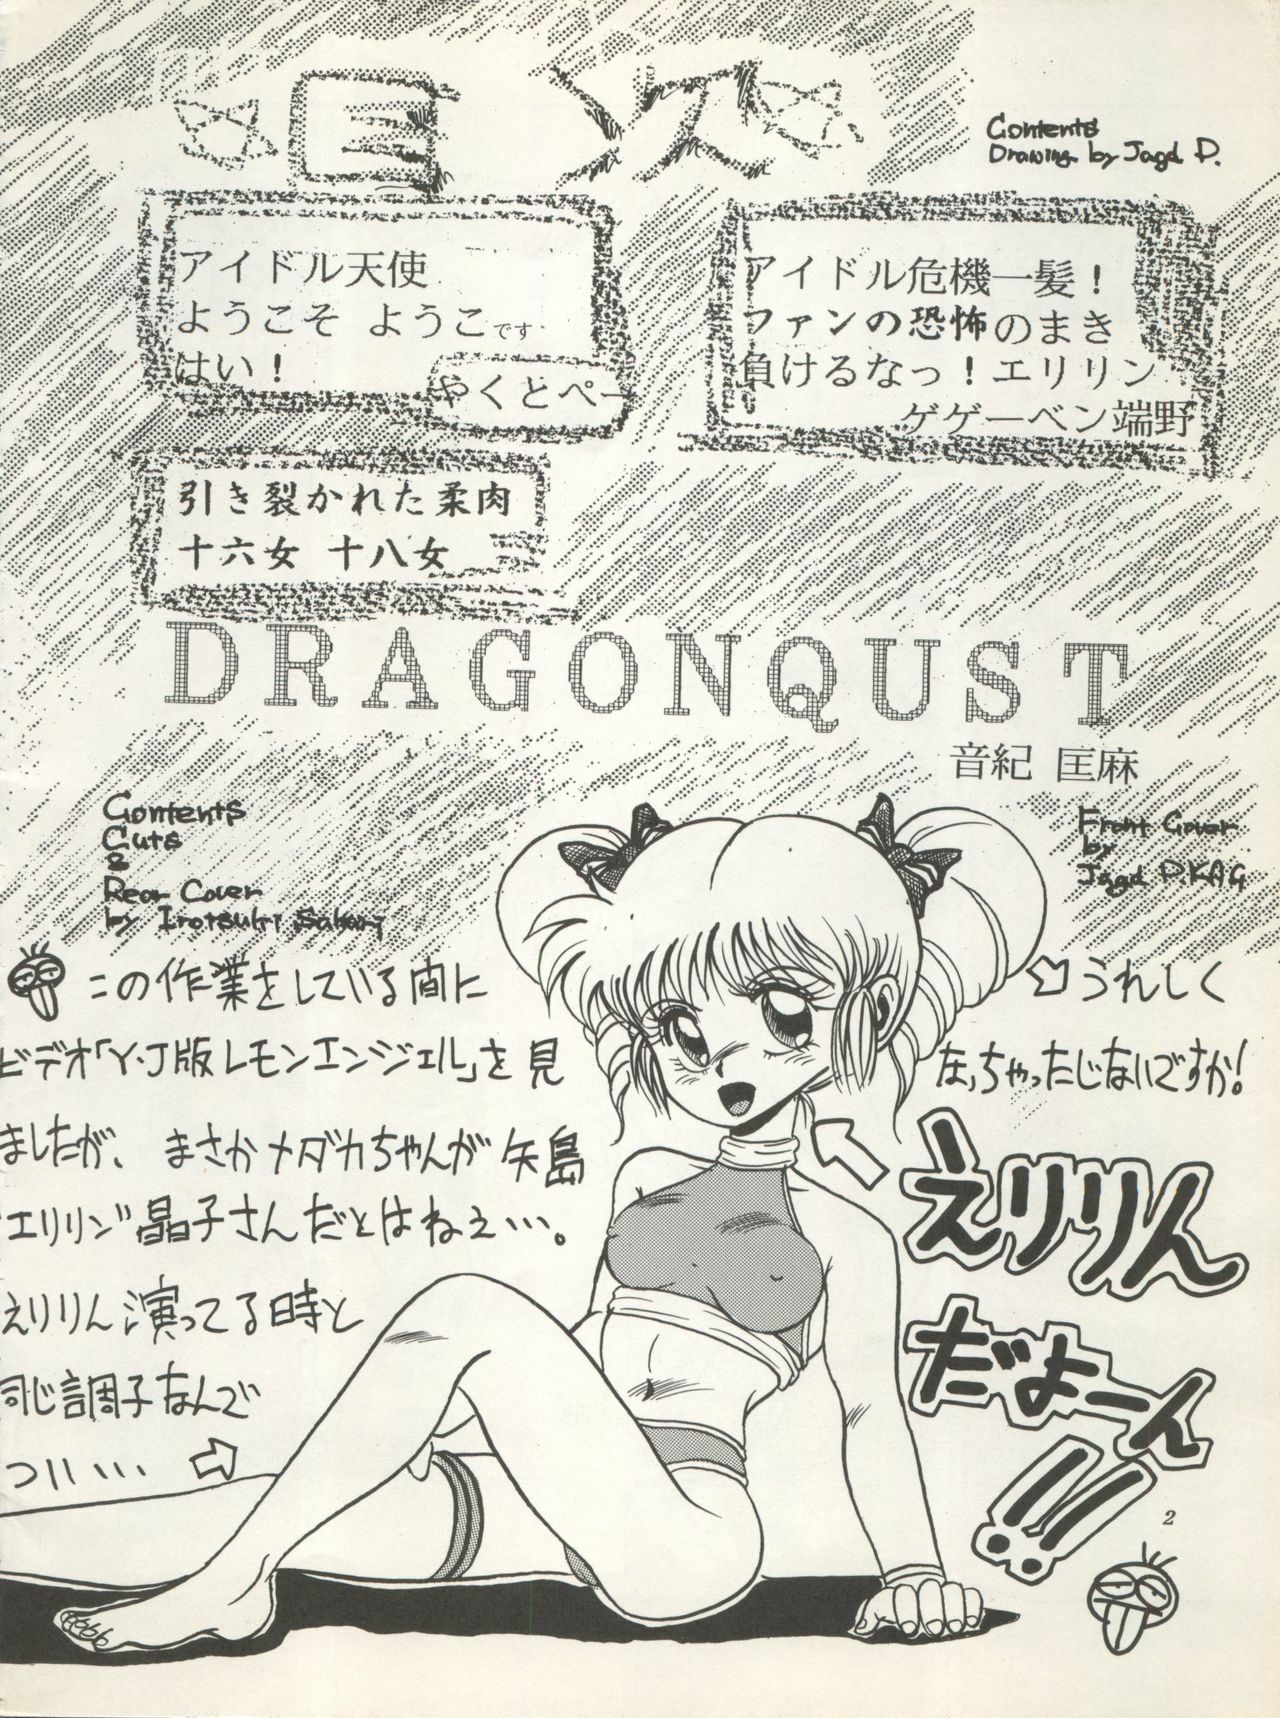 目次
Contents
Drawing by Jagd D.
アイドル天使
ようこそ ようこです
はい！
やくとぺー
アイドル危機一髪！
ファンの恐怖のまき
負けるなっ！エリリン
ゲゲーベン端野
引き裂かれた柔肉
十六女 十八女
DRAGONQUST
音紀 匡麻
Contents
Cuts
&
Rear Cover
by Irotsuki Sakari
Front Cover
by
Jagd D.KAG
この作業をしている間に
ビデオ「Y・J版レモンエンジェル」を見
ましたが、まさかメダカちゃんが矢島
"エリリン"晶子さんだとはねぇ…。
えりりん演ってる時と
同じ調子なんで
つい…
うれしく
なっちゃったじないですか!
えりりん
だよーん
!!!
2